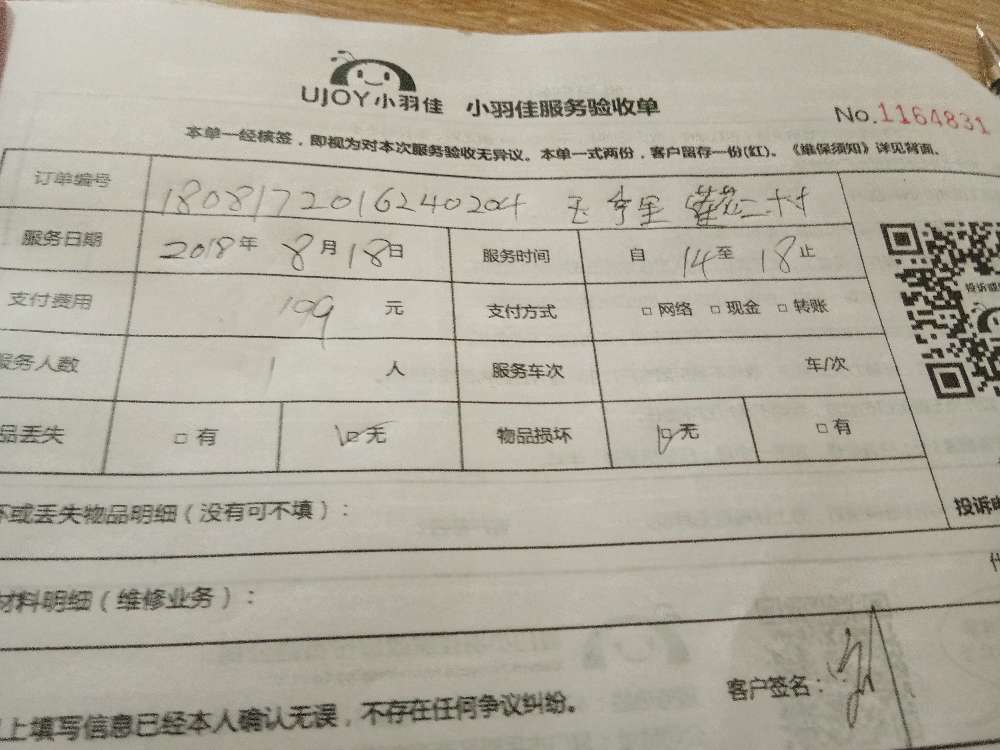 UJOY小羽佳 小羽佳服务验收单
No.1164831
本单一经核签，即视为对本次服务验收无异议。本单一式两份，客户留存一份(红)。《维保须知》详见背面。
订单编号 1808172016240204
服务日期 2018年8月18日 服务时间 自14至18止
支付费用 109元 支付方式 □网络 □现金 □转账
服务人数 1人 服务车次 车/次
品丢失 □有 □无 物品损坏 □无 □有
坏或丢失物品明细（没有可不填）：
投诉
材料明细（维修业务）：
上填写信息已经本人确认无误，不存在任何争议纠纷。 客户签名：